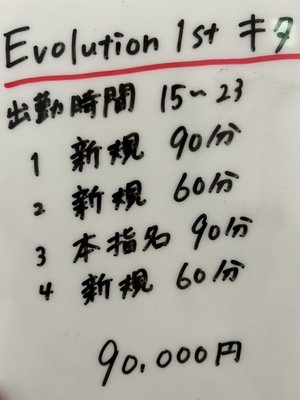 Evolution 1st キタ
出勤時間 15~23
1 新規 90分
2 新規 60分
3 本指名 90分
4 新規 60分
90,000円